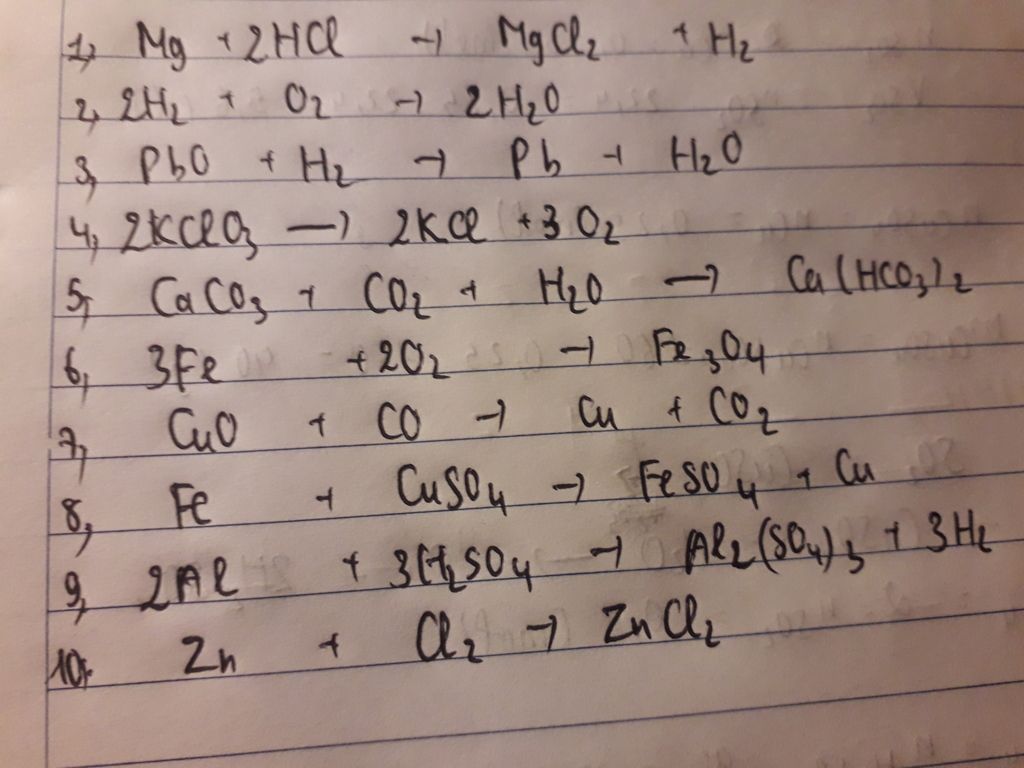 1, Mg + 2HCl → MgCl₂ + H₂
2, 2H₂ + O₂ → 2H₂O
3, PbO + H₂ → Pb + H₂O
4, 2KClO₃ → 2KCl + 3O₂
5, CaCO₃ + CO₂ + H₂O → Ca(HCO₃)₂
6, 3Fe + 2O₂ → Fe₃O₄
7, CuO + CO → Cu + CO₂
8, Fe + CuSO₄ → FeSO₄ + Cu
9, 2Al + 3H₂SO₄ → Al₂(SO₄)₃ + 3H₂
10, Zn + Cl₂ → ZnCl₂